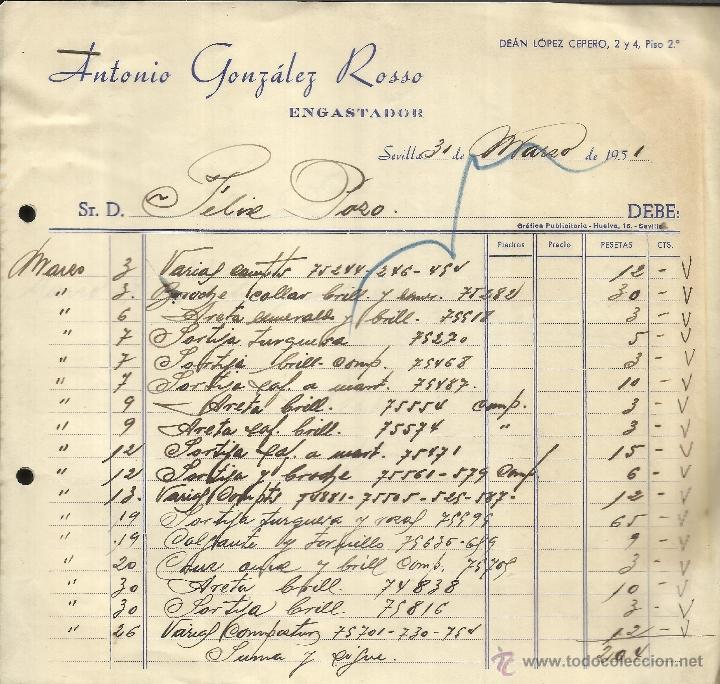 DEÁN LÓPEZ CEPERO, 2 y 4, Piso 2.º
Antonio González Rosso
ENGASTADOR
Sevilla 31 de Marzo de 1951
Sr. D. Félix Pozo. DEBE:
Gráfica Publicitaria - Huelva, 15. - Sevilla
Piedras Precio PESETAS CTS.
Marzo 3 Varias 75244-246-454 12 -
" 3. Broche collar brill. y 75282 30 -
" 6 Areta esmeralda y brill. 75518 3 -
" 7 Sortija turquesa 75270 5 -
" 7 Sortija brill. comp. 75468 3 -
" 7 Sortija a mart. 75487. 10 -
" 9 Areta brill. 75554 comp. 3 -
" 9 Areta brill. 75574 " 3 -
" 12 Sortija a mart. 75471 15 -
" 12 Sortija y broche 75561-579 comp. 6 -
" 13. Varias 74881-75505-525-587- 12 -
" 19 Sortija turquesa y rosas 75599 65 -
" 19 Colgante y tornillo 75636-689 9 -
" 20 Cruz y brill comp. 75709 3 -
" 30 Areta brill. 74838 10 -
" 30 Sortija brill. 75816 3 -
" 26 Varias 75701-730-754 12 -
Suma y sigue. 204
todocoleccion
www.todocoleccion.net